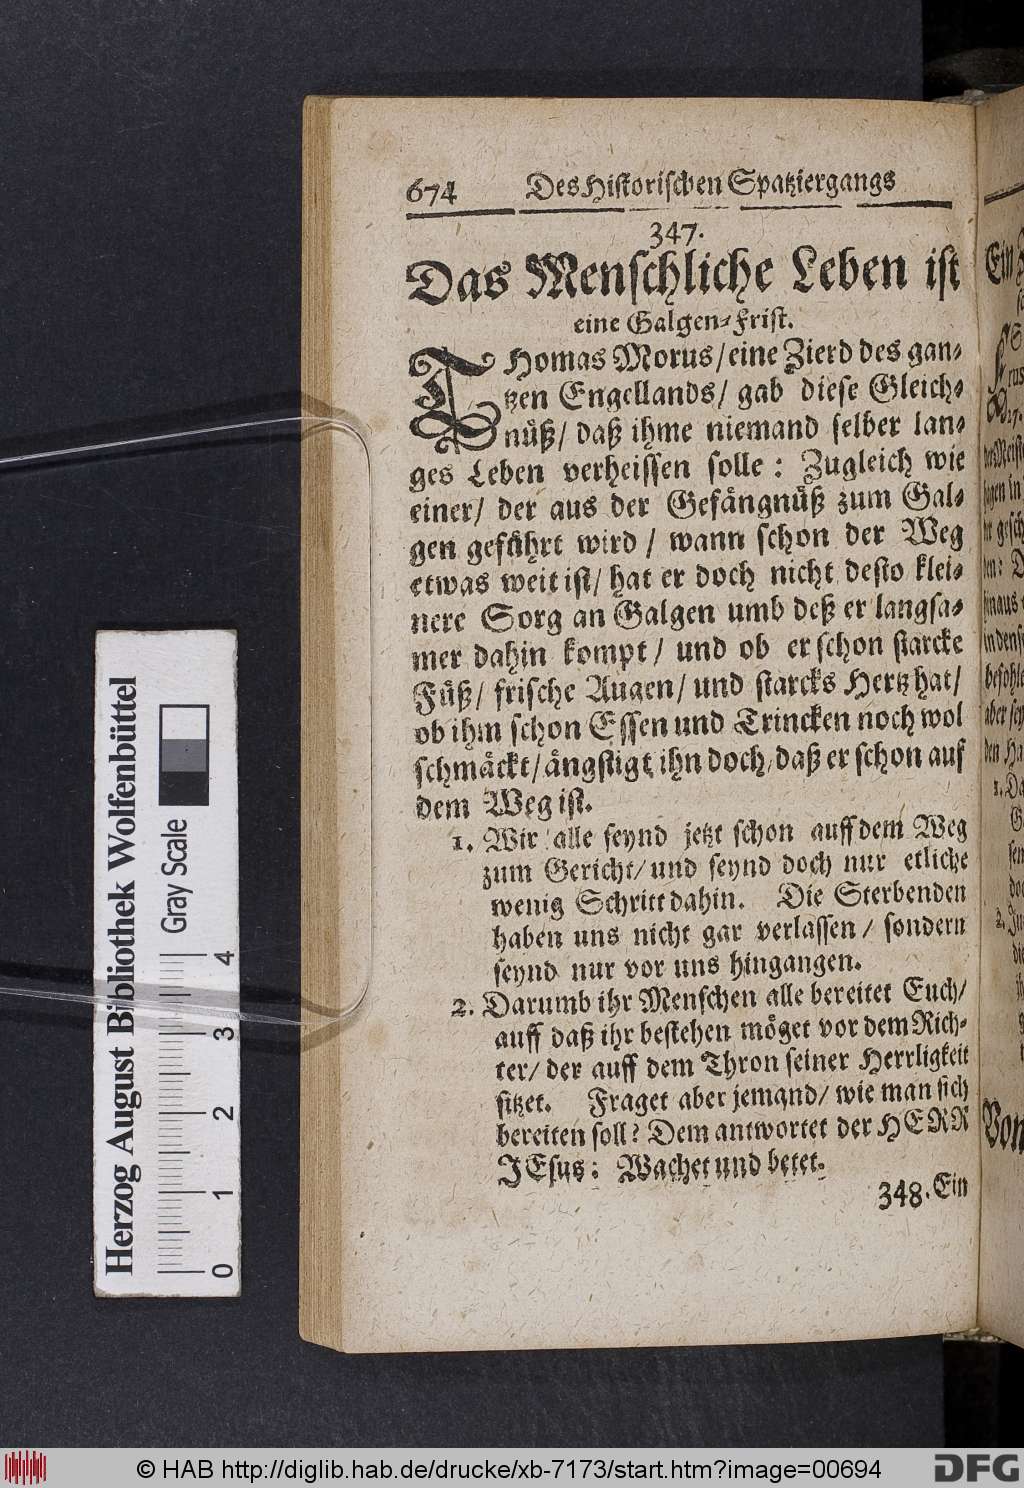 674 Des Historischen Spatziergangs
347.
Das Menschliche Leben ist
eine Galgen-Frist.
THomas Morus/ eine Zierd des gan-
tzen Engellands/ gab diese Gleich-
nüß/ daß ihme niemand selber lan-
ges Leben verheissen solle: Zugleich wie
einer/ der aus der Gefängnüß zum Gal-
gen geführt wird/ wann schon der Weg
etwas weit ist/ hat er doch nicht desto klei-
nere Sorg an Galgen umb deß er langsa-
mer dahin kompt/ und ob er schon starcke
Füß/ frische Augen/ und starcks Hertz hat/
ob ihm schon Essen und Trincken noch wol
schmäckt/ ängstigt ihn doch/ daß er schon auf
dem Weg ist.
1. Wir alle seynd jetzt schon auff dem Weg
zum Gericht/ und seynd doch nur etliche
wenig Schritt dahin. Die Sterbenden
haben uns nicht gar verlassen/ sondern
seynd nur vor uns hingangen.
2. Darumb ihr Menschen alle bereitet Euch/
auff daß ihr bestehen möget vor dem Rich-
ter/ der auff dem Thron seiner Herrligkeit
sitzet. Fraget aber jemand/ wie man sich
bereiten soll? Dem antwortet der HERR
JEsus: Wachet und betet.
348. Ein
Herzog August Bibliothek Wolfenbüttel
Gray Scale
0 1 2 3 4
© HAB http://diglib.hab.de/drucke/xb-7173/start.htm?image=00694
DFG